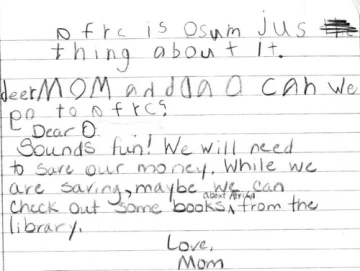 ofrc is osum jus
thing about it.
deer MOM and dad can we
go to ofrc?
Dear D.
Sounds fun! We will need
to save our money. While we
are saving, maybe we can
check out some books about Africa from the
library.
Love,
Mom